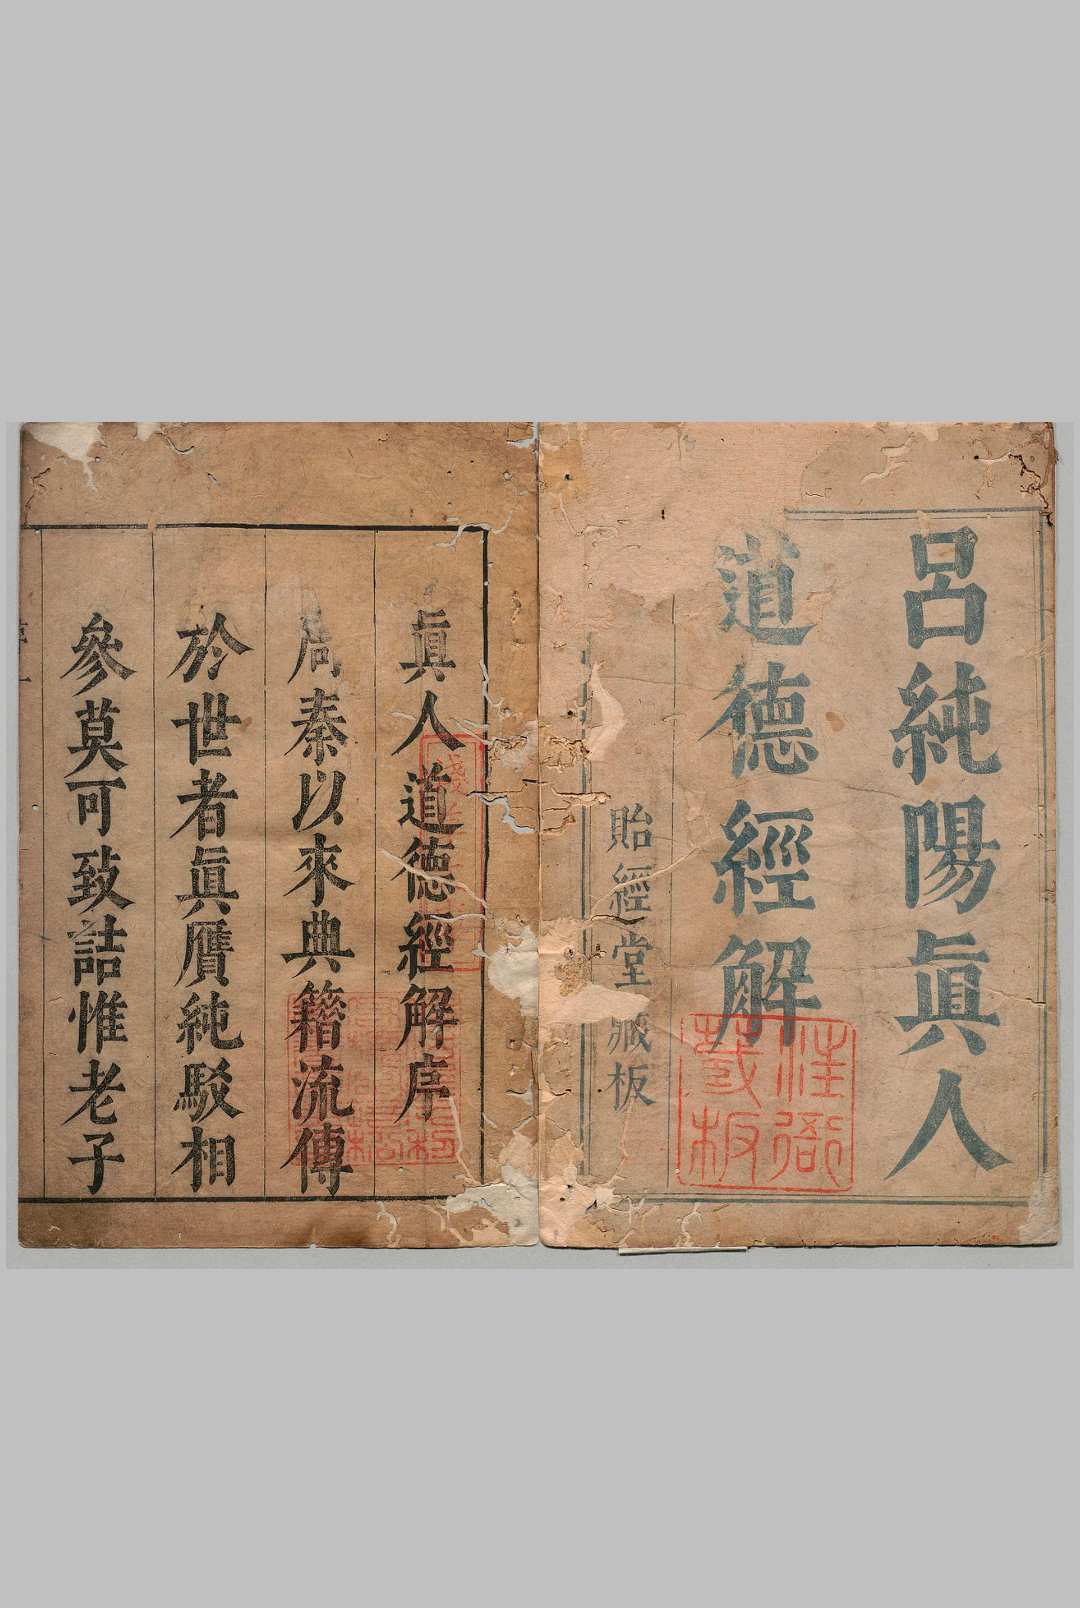 呂純陽真人
道德經解
貽經堂藏板
汪衙藏板
真人道德經解序
周秦以來典籍流傳
於世者真贋純駁相
參莫可致詰惟老子